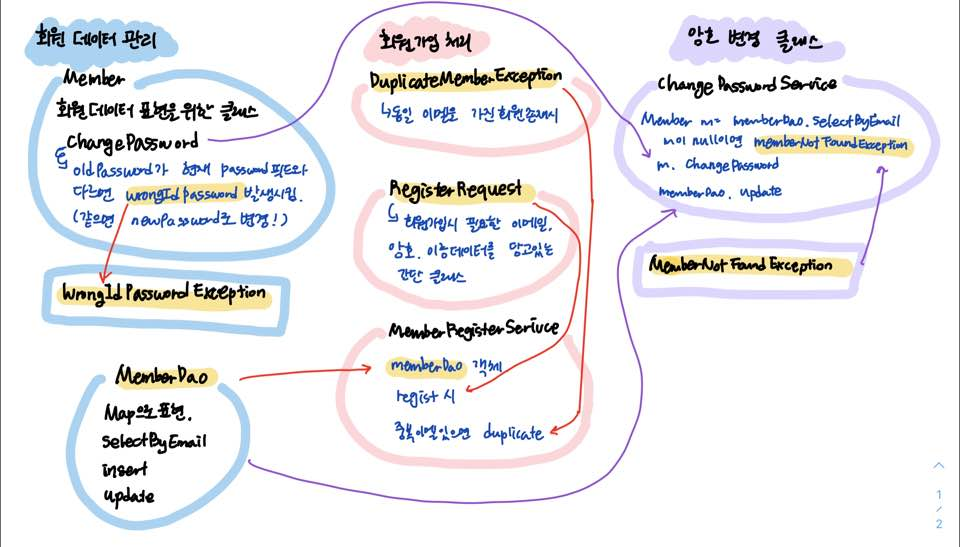 회원 데이터 관리
Member
회원 데이터 표현을 위한 클래스
changePassword
↳ oldPassword가 현재 password 필드와
다르면 wrongIdpassword 발생시킴.
(같으면 newPassword로 변경!)
WrongIdPasswordException
MemberDao
Map으로 표현.
selectByEmail
insert
update
회원가입 처리
DuplicateMemberException
↳ 동일 이메일로 가진 회원 존재시
RegisterRequest
↳ 회원가입시 필요한 이메일,
암호, 이름데이터를 담고있는
간단 클래스
MemberRegisterSerivce
memberDao 객체
regist 시
중복이멜있으면 duplicate
암호 변경 클래스
changePasswordService
Member m= memberDao.selectByEmail
m이 null이면 memberNotFoundException
m. changePassword
memberDao. update
MemberNotFoundException
1
/
2